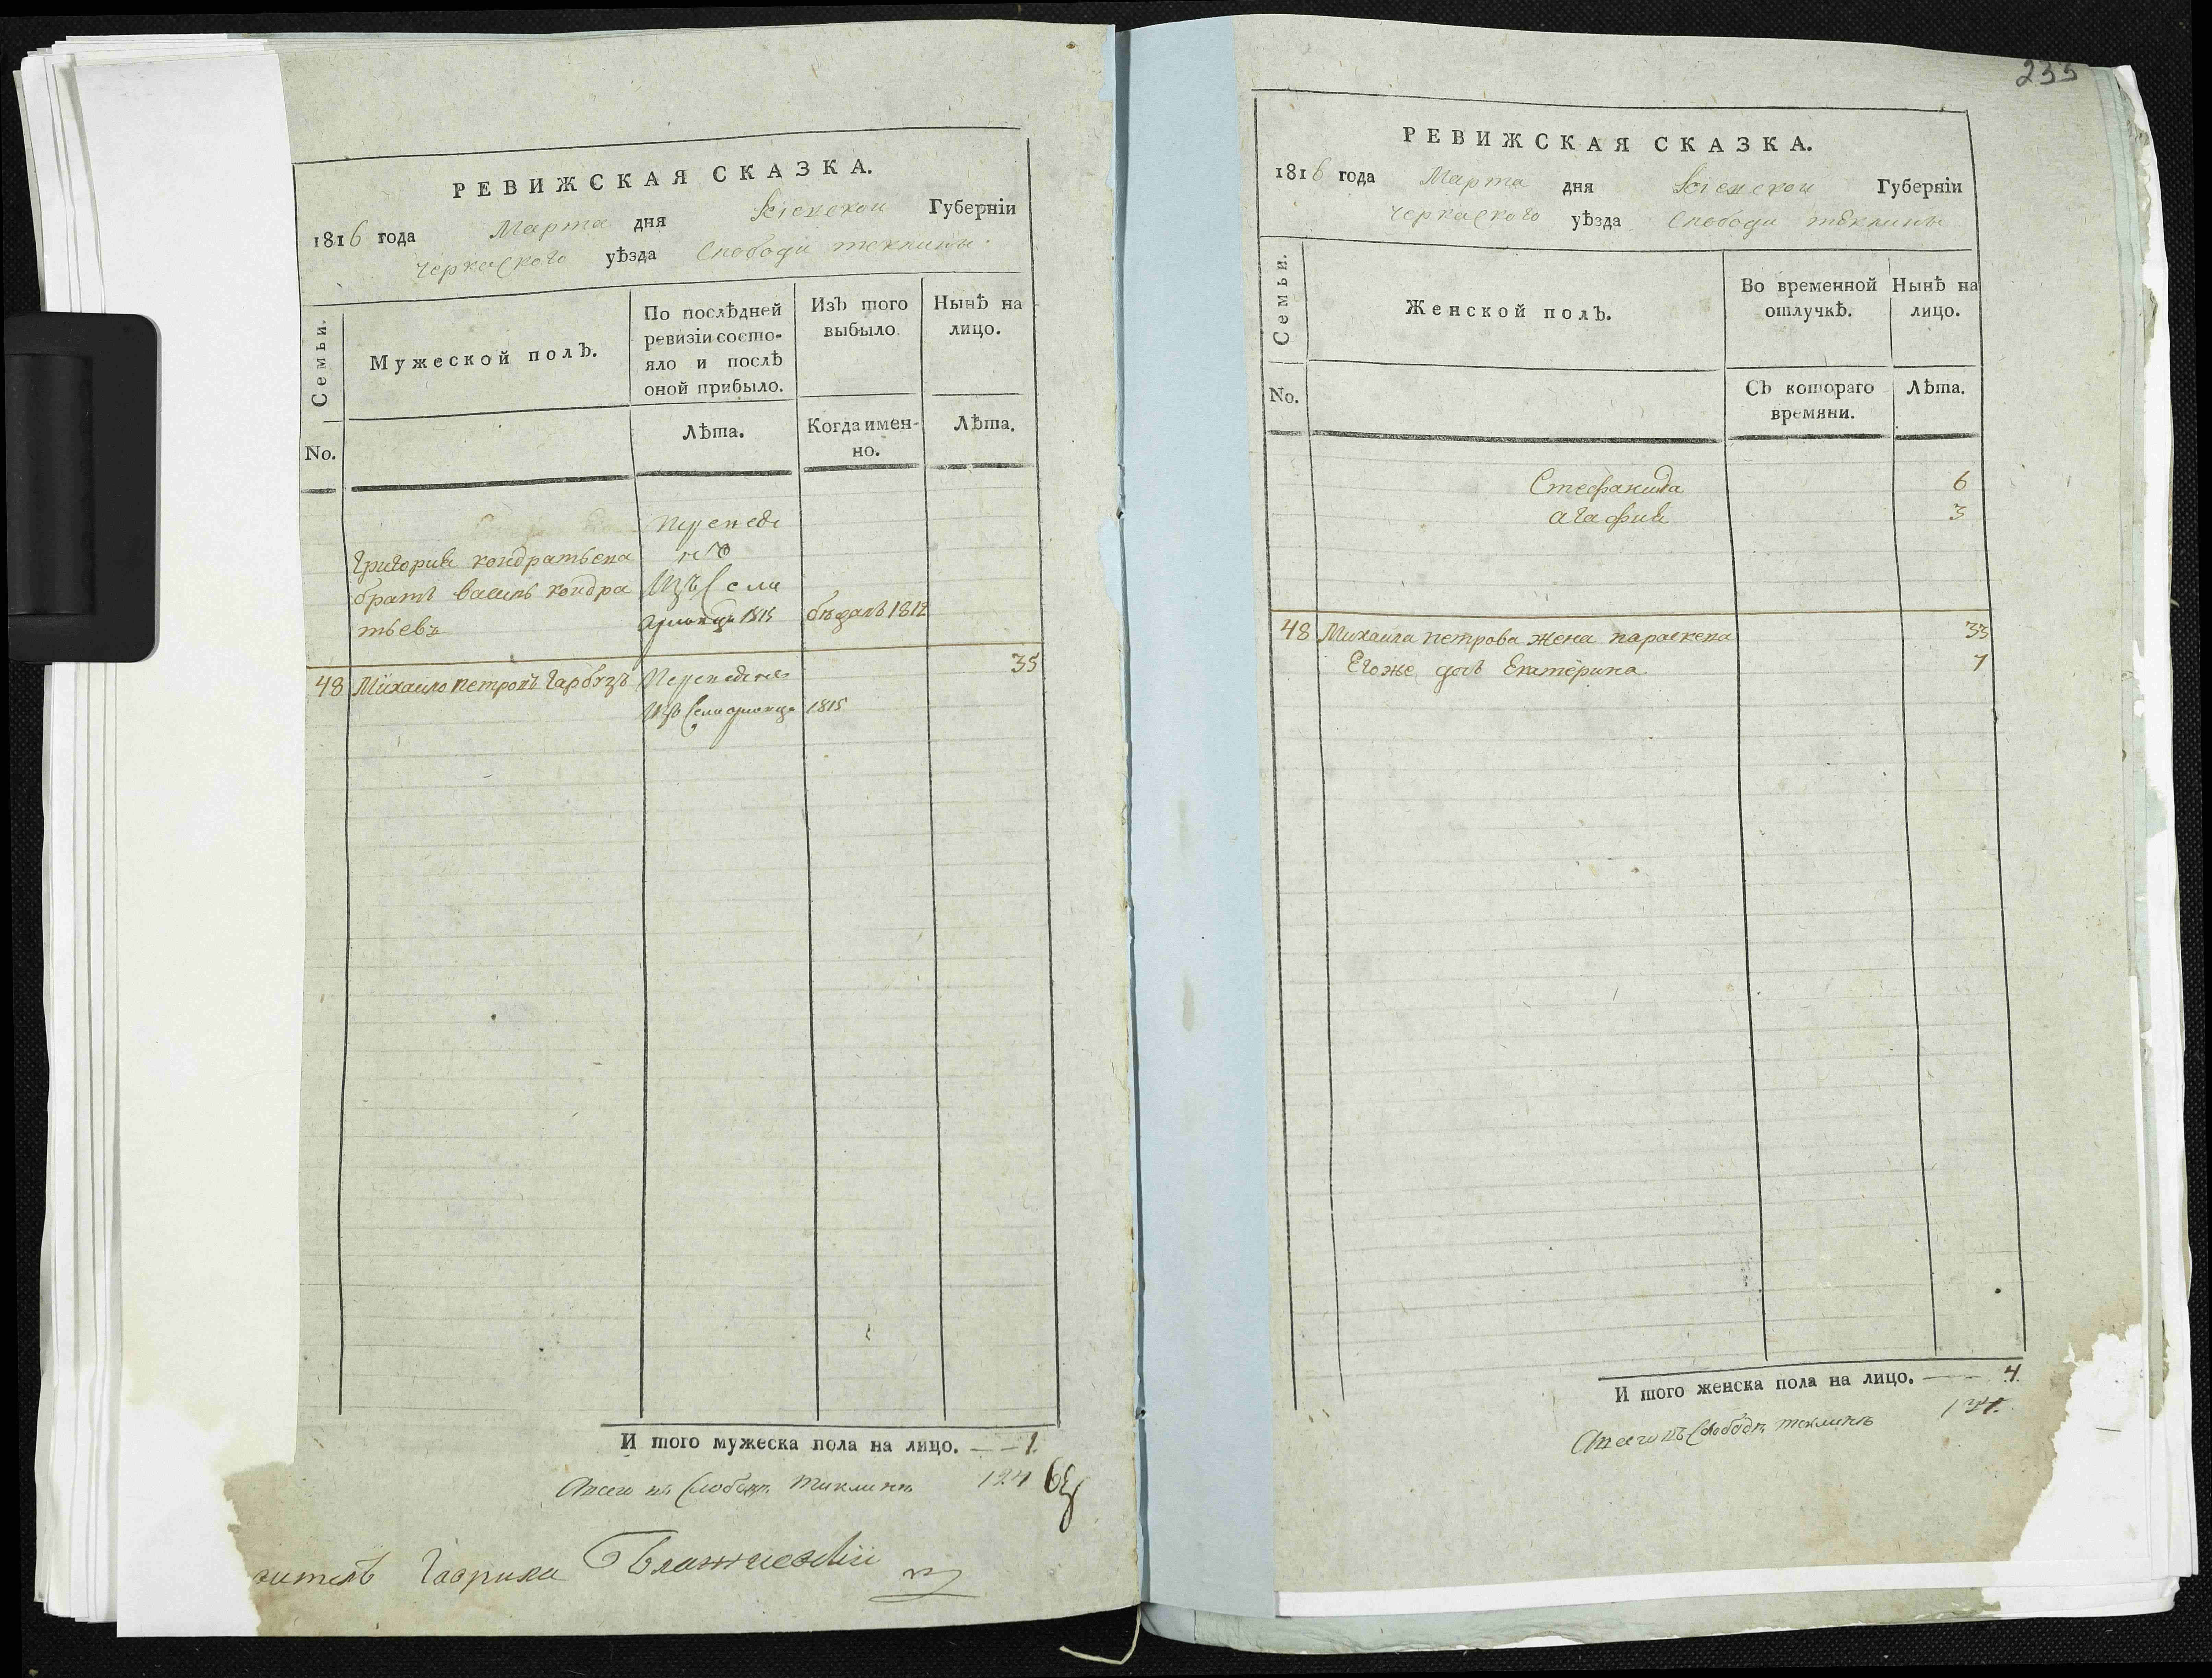 РЕВИЖСКАЯ СКАЗКА.
1816 года Марта дня Кіевской Губерніи
Черкаского уѣзда Слободи теклины
Семьи.
Мужеской полъ.
По послѣдней ревизіи состо-
яло и послѣ
оной прибыло.
Изъ того
выбыло.
Ныне на
лицо.
No.
Лѣта.
Когда имен-
но.
Лѣта.
Григория кондратьева
братъ василь кондра
тьевъ
Изъ Села
1815
бѣжалъ 1812
48 Михайло петровъ Гарбузъ
35
Изъ Села
1815
И того мужеска пола на лицо. — — 1.
Всего въ Слободѣ Теклинѣ 124
Гаврила
233
РЕВИЖСКАЯ СКАЗКА.
1816 года Марта дня Кіевской Губерніи
Черкаского уѣзда Слободи теклины
Семьи.
Женской полъ.
Во временной
отлучкѣ.
Нынѣ на
лицо.
No.
Съ котораго
времяни.
Лѣта.
Стефанида 6
агафия 3
48 Михаила петрова жена параскева 33
Егоже дочь Екатерина 7
И того женска пола на лицо. — — 4.
Всего въ Слободѣ теклинѣ